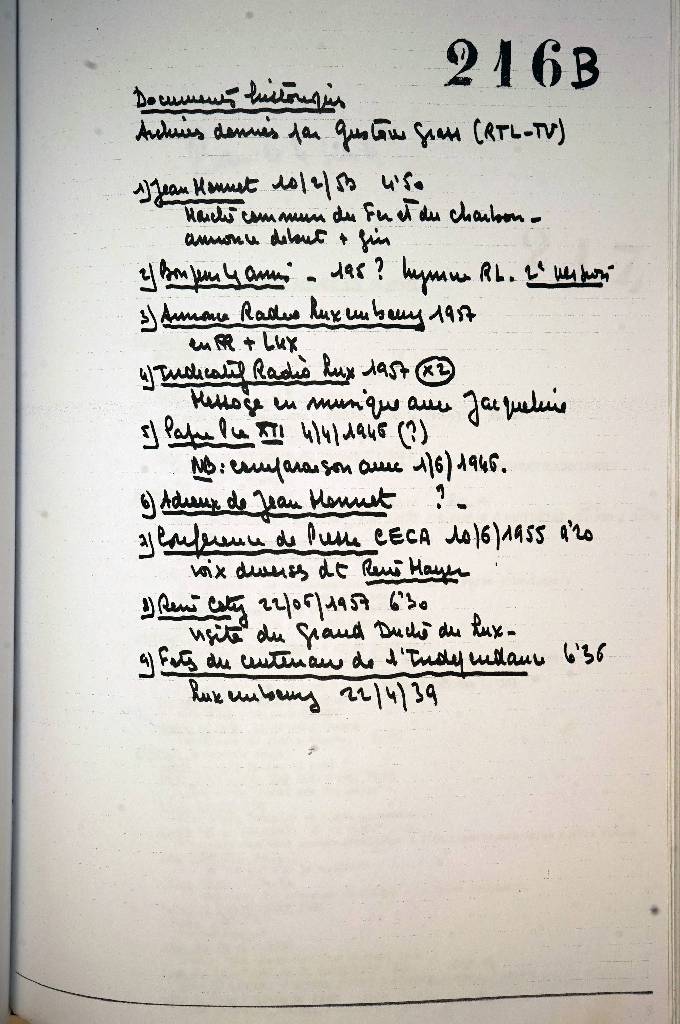 216B
Documents historiques
Archives données par Gustave Grass (RTL-TV)
1) Jean Monnet 10/2/53 4'50
Marché commun du Fer et du charbon -
annonce début + fin
2) Bonjour les amis - 195 ? hymne RL. 2e version
3) Annonce Radio Luxembourg 1957
en FR + LUX
4) Indicatif Radio Lux 1957 (x2)
Message en musique avec Jacqueline
5) Pape Pie XII 4/4/1946 (?)
NB: comparaison avec 1/6/1946.
6) Adieux de Jean Monnet ? -
7) Conférence de Presse CECA 10/6/1955 9'20
voix diverses dt René Mayer
8) René Coty 22/05/1957 6'30
visite du Grand Duché du Lux -
9) Fête du centenaire de l'Indépendance 6'36
Luxembourg 22/4/39